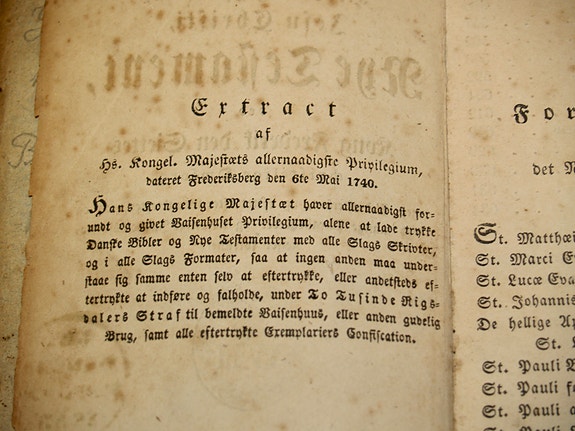 Extract
af
Hs. Kongel. Majestæts allernaadigste Privilegium,
dateret Frederiksberg den 6te Mai 1740.
Hans Kongelige Majestæt haver allernaadigst for-
undt og givet Vaisenhuset Privilegium, alene at lade trykke
Danske Bibler og Nye Testamenter med alle Slags Skrivter,
og i alle Slags Formater, saa at ingen anden maa under-
staae sig samme enten selv at eftertrykke, eller andetsteds ef-
tertrykte at indføre og falholde, under To Tusinde Rigs-
dalers Straf til bemeldte Vaisenhuus, eller anden gudelig
Brug, samt alle eftertrykte Exemplariers Confiscation.
For
det N
St. Matthæi
St. Marci E
St. Lucæ Eva
St. Johannis
De hellige Ap
St.
St. Pauli B
St. Pauli f
St. Pauli a
St. Pauli